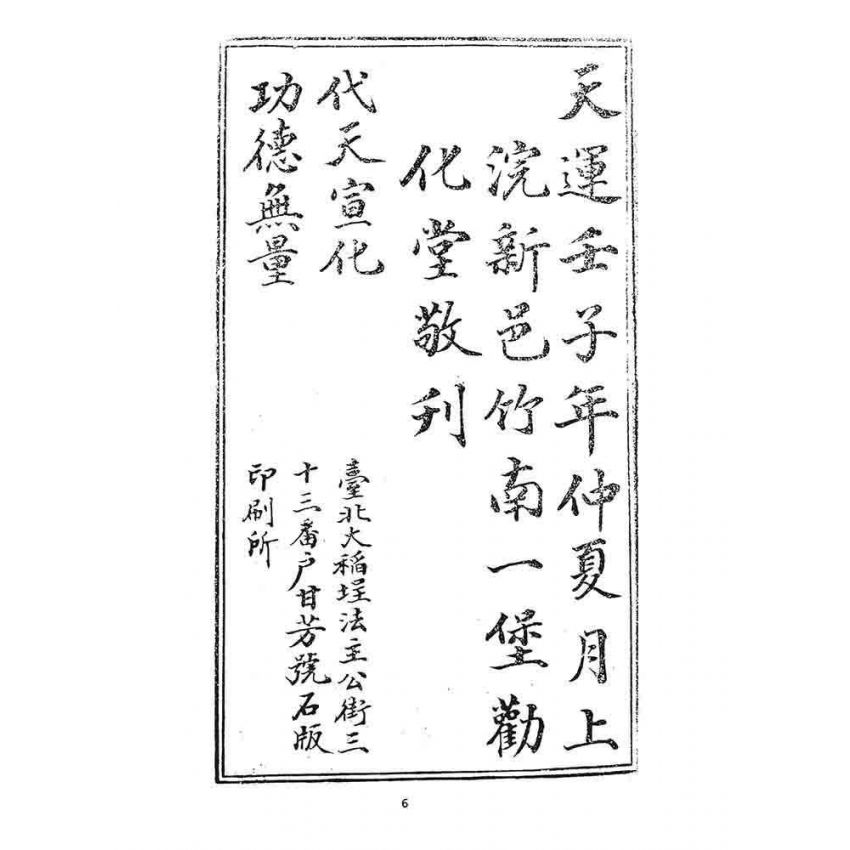 天運壬子年仲夏月上
浣新邑竹南一堡勸
化堂敬刊
代天宣化
功德無量
臺北大稻埕法主公街三
十三番戶甘芳號石版
印刷所
6